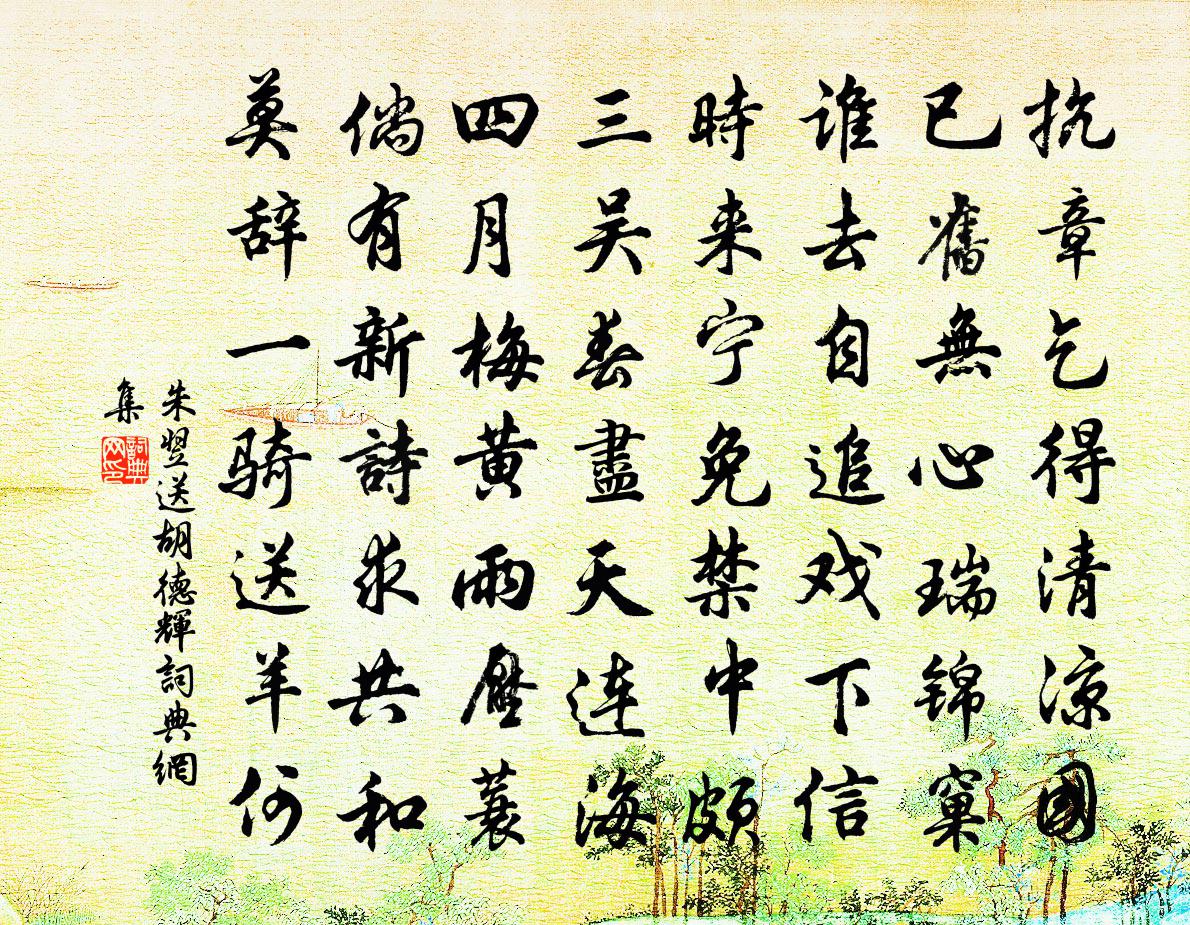 抗章乞得清凉國
已舊無心瑞锦窠
谁去自追戏下信
時来宁免禁中頗
三吴春盡天連海
四月梅黄雨壓蓑
倘有新詩求共和
莫辞一骑送羊何
朱翌送胡德輝詞典網
集
詞典网印